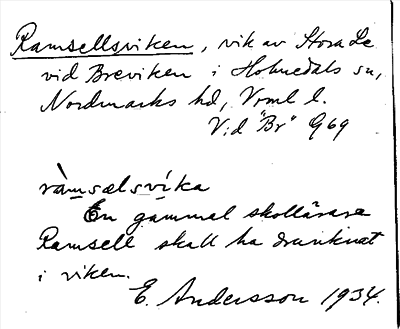 Ramsellsviken, vik av Stora Le
vid Breviken i Holmedals sn,
Nordmarks hd, Vrml l.
Vid "Br" G69
ràmsælsvíka
En gammal skollärare
Ramsell skall ha drunknat
i viken.
E. Andersson 1934.